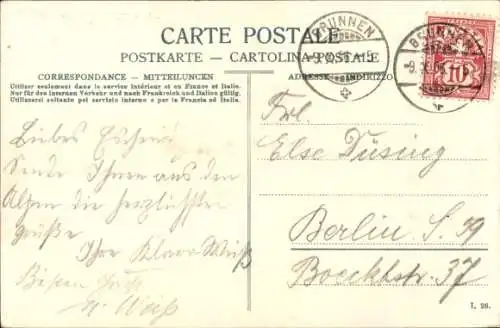 CARTE POSTALE
POSTKARTE - CARTOLINA POSTALE
CORRESPONDANCE - MITTEILUNGEN
ADRESSE - INDIRIZZO
Utilizer seulement dans le service intérieur et en France et Italie.
Nur für den internen Verkehr und nach Frankreich und Italien gültig.
Utilizarsi soltanto pel servizio interno e per la Francia ed Italia.
BRUNNEN
BRUNNEN
10
Liebes
Sende Ihnen aus den
Alpen die herzlichsten
Grüße
Ihre Klara Weiß
Besten Gruß
Weiß
Frl.
Else Düsing
Berlin S. 59
Boeckhstr. 37
I. 26.